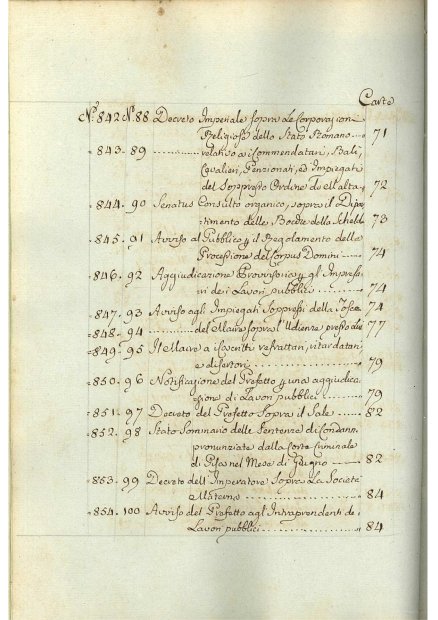 Carte
N.° 842 N.° 88 Decreto Imperiale sopra Le Corporazioni
Religiose dello Stato Romano ... 71
843. 89 ... relativo ai Commendatari, Bali,
Cavalieri, Pensionati, ed Impiegati
del Soppresso Ordine di Malta .. 72
844. 90 Senatus Consulto organico, sopra il Dipar
timento delle Bocche della Schelda 73
845. 91 Avviso al Pubblico p il Regolamento della
Processione del Corpus Domini ... 74
846. 92 Aggiudicazione Provvisoria p gl' Impressi
vi dei Lavori pubblici ... 74
847. 93 Avviso agli Impiegati Soppressi della Tosca 74
848. 94 ... del Maire sopra l'Udienze presso di 77
849. 95 Il Maire a i refrattari, ritardatari
e disertori ... 79
850. 96 Notificazione del Prefetto p una aggiudica
zione di Lavori pubblici ... 79
851. 97 Decreto del Prefetto Sopra il Sale ... 82
852. 98 Stato Sommario delle Sentenze di Condann.
pronunziate dalla Corte Criminale
di Pisa nel Mese di Giugno ... 82
853. 99 Decreto dell'Imperatore Sopra La Società
Materna ... 84
854. 100 Avviso del Prefetto agl'Intraprendenti de
Lavori pubblici ... 84